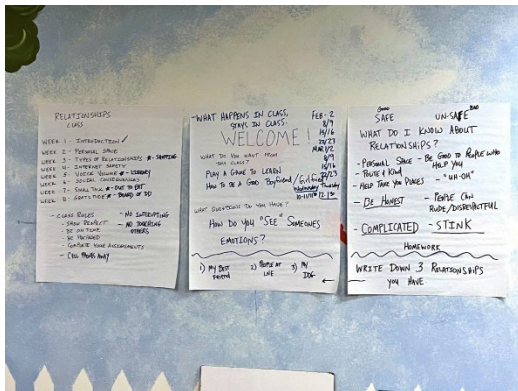 RELATIONSHIPS
CLASS
WEEK 1 - INTRODUCTION ✓
WEEK 2 - PERSONAL SPACE
WEEK 3 - TYPES OF RELATIONSHIPS
WEEK 4 - INTERNET SAFETY
WEEK 5 - VOICE VOLUME - LIBRARY
WEEK 6 - SOCIAL CONSEQUENCES
WEEK 7 - SMALL TALK - OUT TO EAT
WEEK 8 - GRATITUDE - BOARD OF DD
- CLASS RULES
- SHOW RESPECT
- BE ON TIME
- BE PREPARED
- COMPLETE YOUR ASSIGNMENTS
- CELL PHONES AWAY
- NO INTERRUPTING
- NO TOUCHING
OTHERS
- WHAT HAPPENS IN CLASS,
STAYS IN CLASS.
WELCOME!
FEB - 2
8/9
15/16
22/23
MAR 1/2
8/9
15/16
22/23
WHAT DO YOU WANT FROM
THIS CLASS?
PLAY A GAME TO LEARN
HOW TO BE A GOOD Boyfriend / Girlfriend
Wednesday - Thursday
WHAT QUESTIONS DO YOU HAVE?
HOW DO YOU "SEE" SOMEONES
EMOTIONS?
1) MY BEST
FRIEND
2) PEOPLE AT
3) MY
GOOD
SAFE
BAD
UN-SAFE
WHAT DO I KNOW ABOUT
RELATIONSHIPS?
- PERSONAL SPACE
- BE GOOD TO PEOPLE WHO
HELP YOU
- POLITE & KIND
- HELP TAKE YOU PLACES
- "UH-OH"
- BE HONEST
- PEOPLE CAN
RUDE/DISRESPECTFUL
COMPLICATED
- STINK
HOMEWORK
WRITE DOWN 3 RELATIONSHIPS
YOU HAVE